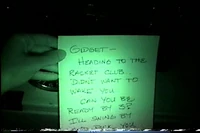 GIDGET —
HEADING TO THE
RACKET CLUB
DIDN'T WANT TO
WAKE YOU
CAN YOU BE
READY BY 5?
I'LL SWING BY